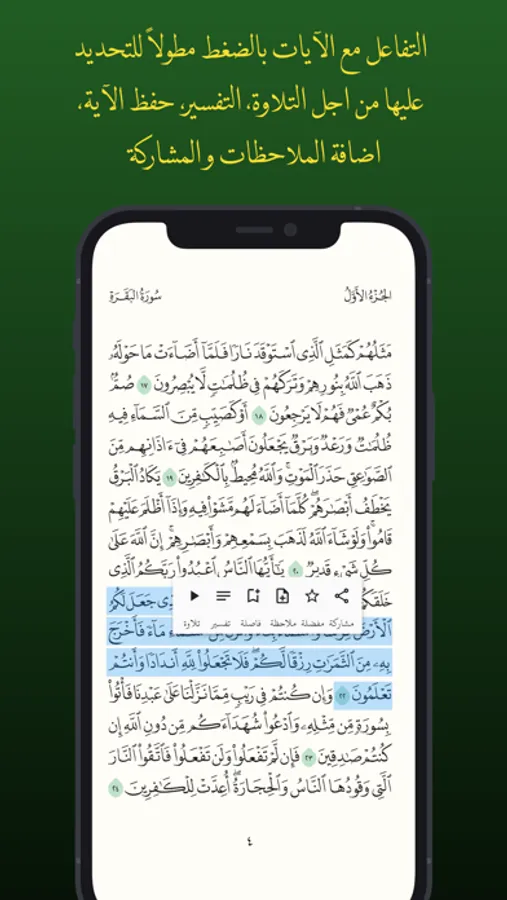 التفاعل مع الآيات بالضغط مطولاً للتحديد
عليها من اجل التلاوة، التفسير، حفظ الآية،
اضافة الملاحظات والمشاركة
الجُزْءُ الأَوَّلُ
سُورَةُ البَقَرَةِ
مَثَلُهُمْ كَمَثَلِ ٱلَّذِى ٱسْتَوْقَدَ نَارًا فَلَمَّآ أَضَآءَتْ مَا حَوْلَهُۥ
ذَهَبَ ٱللَّهُ بِنُورِهِمْ وَتَرَكَهُمْ فِى ظُلُمَٰتٍ لَّا يُبْصِرُونَ ١٧ صُمٌّۢ
بُكْمٌ عُمْىٌ فَهُمْ لَا يَرْجِعُونَ ١٨ أَوْ كَصَيِّبٍ مِّنَ ٱلسَّمَآءِ فِيهِ
ظُلُمَٰتٌ وَرَعْدٌ وَبَرْقٌ يَجْعَلُونَ أَصَٰبِعَهُمْ فِىٓ ءَاذَانِهِم مِّنَ
ٱلصَّوَٰعِقِ حَذَرَ ٱلْمَوْتِ ۚ وَٱللَّهُ مُحِيطٌۢ بِٱلْكَٰفِرِينَ ١٩ يَكَادُ ٱلْبَرْقُ
يَخْطَفُ أَبْصَٰرَهُمْ ۖ كُلَّمَآ أَضَآءَ لَهُم مَّشَوْا۟ فِيهِ وَإِذَآ أَظْلَمَ عَلَيْهِمْ
قَامُوا۟ ۚ وَلَوْ شَآءَ ٱللَّهُ لَذَهَبَ بِسَمْعِهِمْ وَأَبْصَٰرِهِمْ ۚ إِنَّ ٱللَّهَ عَلَىٰ
كُلِّ شَىْءٍ قَدِيرٌ ٢٠ يَٰٓأَيُّهَا ٱلنَّاسُ ٱعْبُدُوا۟ رَبَّكُمُ ٱلَّذِى
جَعَلَ لَكُمُ
مشاركة مفضلة ملاحظة فاصلة تفسير تلاوة
ٱلْأَرْضَ مَآءً فَأَخْرَجَ
بِهِۦ مِنَ ٱلثَّمَرَٰتِ رِزْقًا لَّكُمْ ۖ فَلَا تَجْعَلُوا۟ لِلَّهِ أَندَادًا وَأَنتُمْ
تَعْلَمُونَ ٢٢ وَإِن كُنتُمْ فِى رَيْبٍ مِّمَّا نَزَّلْنَا عَلَىٰ عَبْدِنَا فَأْتُوا۟
بِسُورَةٍ مِّن مِّثْلِهِۦ وَٱدْعُوا۟ شُهَدَآءَكُم مِّن دُونِ ٱللَّهِ إِن
كُنتُمْ صَٰدِقِينَ ٢٣ فَإِن لَّمْ تَفْعَلُوا۟ وَلَن تَفْعَلُوا۟ فَٱتَّقُوا۟ ٱلنَّارَ
ٱلَّتِى وَقُودُهَا ٱلنَّاسُ وَٱلْحِجَارَةُ ۖ أُعِدَّتْ لِلْكَٰفِرِينَ ٢٤
٤